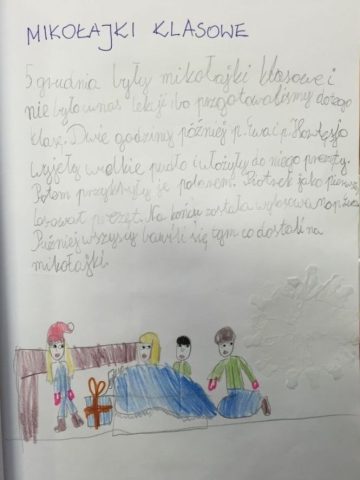 MIKOŁAJKI KLASOWE
5 grudnia były mikołajki klasowe i
nie było u nas lekcji bo przgotowaliśmy do tego
klasę. Dwie godziny później p. Ewa i p.
wyjęły wielkie pudło i włożyły do niego prezęty.
Potem przykryły je polarem. Piotrek jako pierwszy
losował prezęt. Na końcu została wylosowana p. Ewa.
Puźniej wszyscy bawili się tym co dostali na
mikołajki.